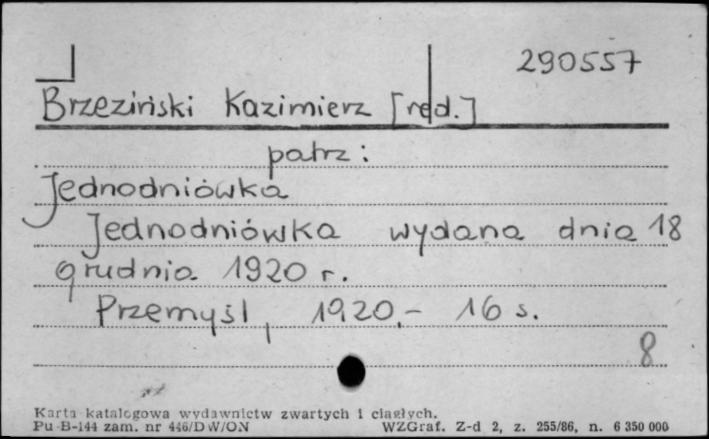 290557
Brzeziński Kazimierz [red.]
patrz:
Jednodniówka
Jednodniówka wydana dnia 18
grudnia 1920 r.
Przemyśl, 1920.- 16 s.
8
Karta katalogowa wydawnictw zwartych i ciągłych.
Pu B-144 zam. nr 446/DW/ON WZGraf. Z-d 2, z. 255/86, n. 6 350 000